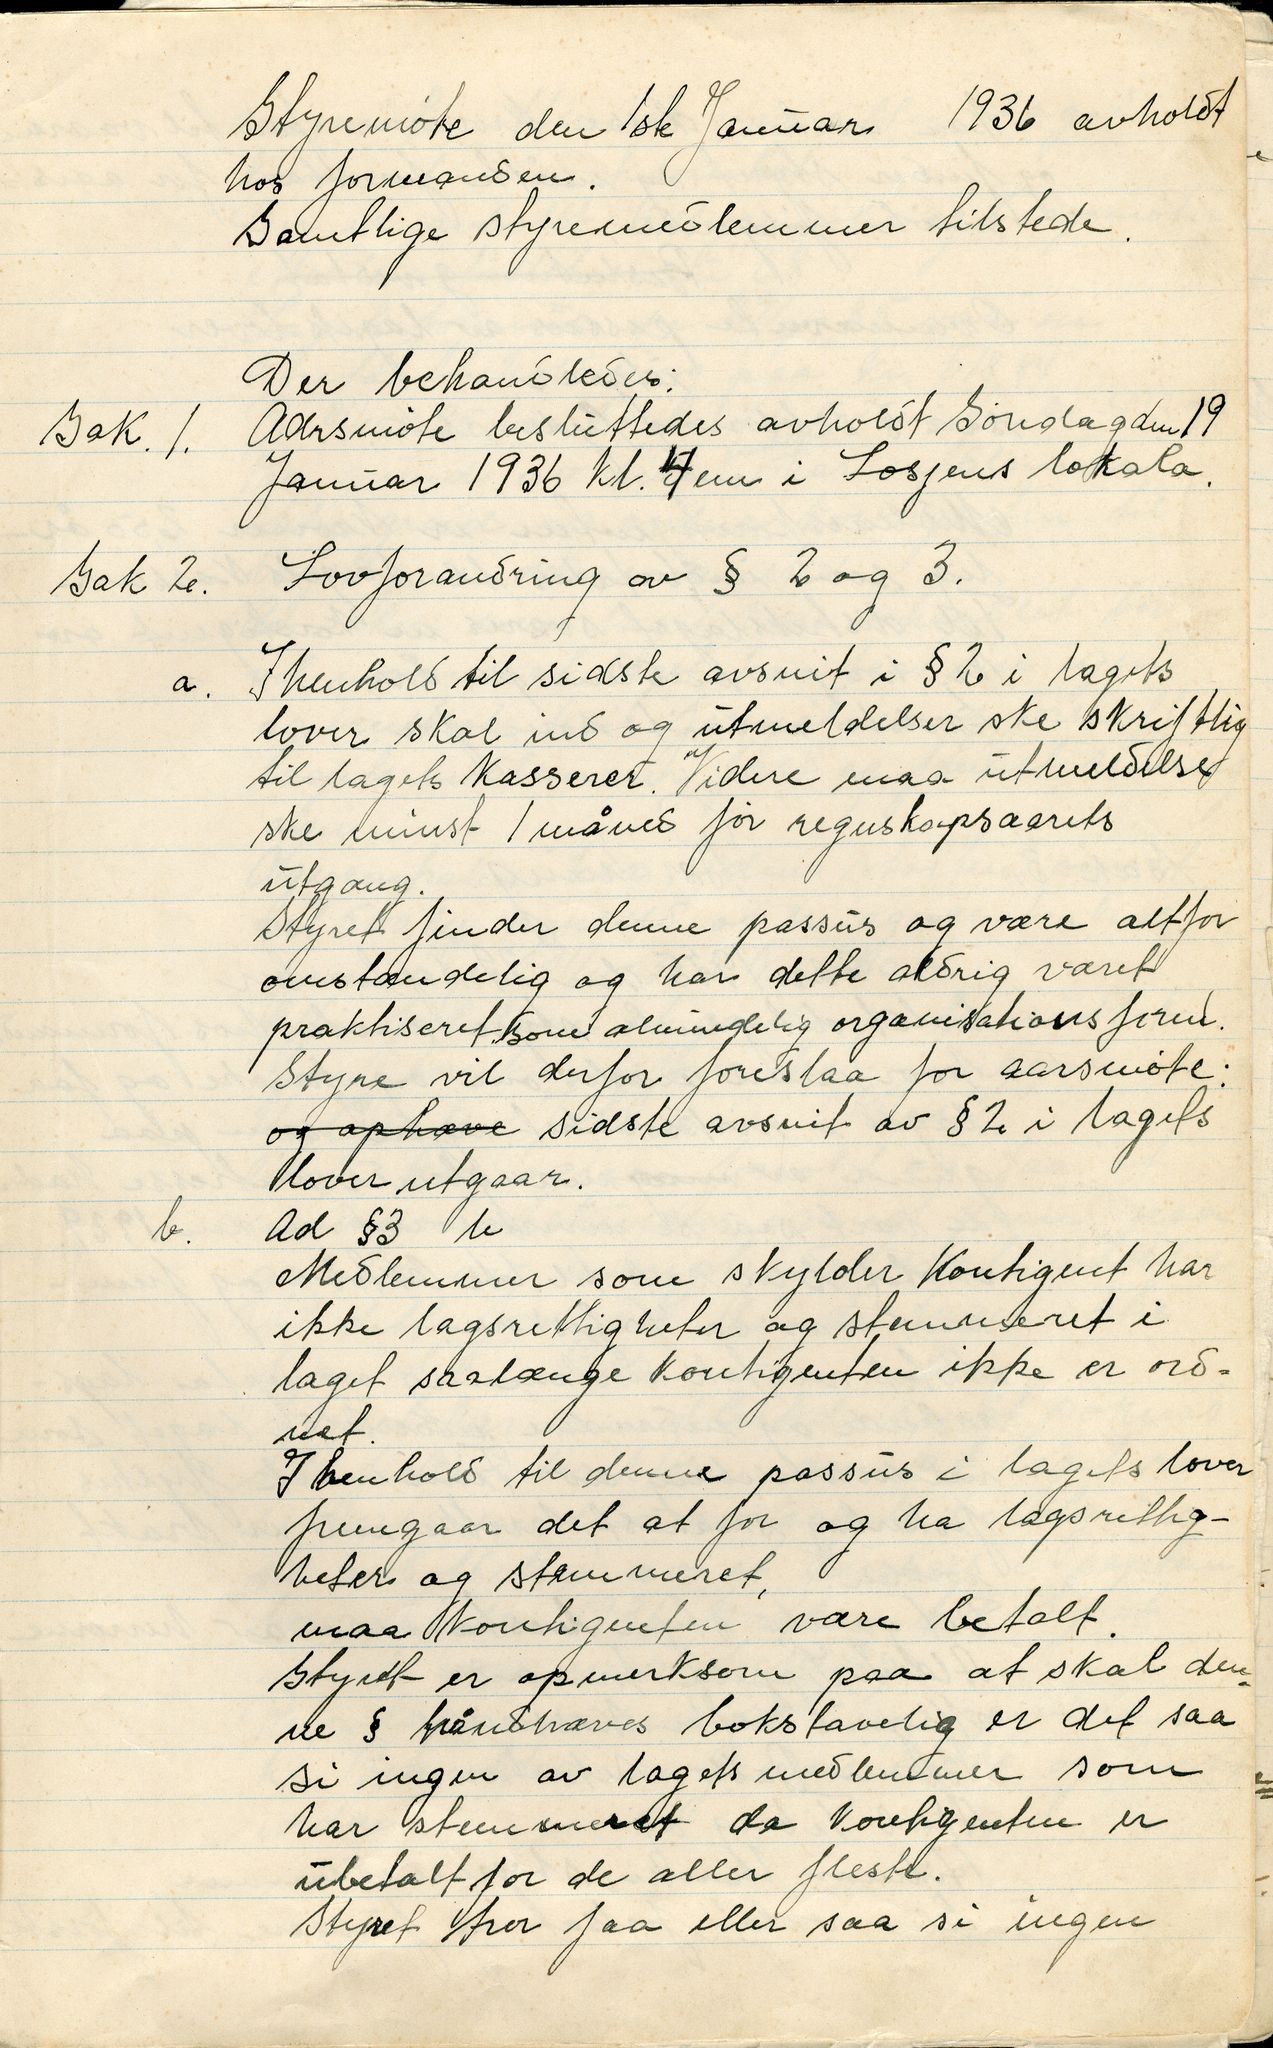 Styremöte den 1ste Januar 1936 avholdt
hos formanden.
Samtlige styremedlemmer tilstede.
Der behandledes:
Sak. 1. Adrsmöte besluttedes avholdt Söndag den 19
Januar 1936 kl. 4 em i Losjens lokala.
Sak 2. Lovforandring av § 2 og 3.
a. I henhold til sidste avsnit i § 2 i lagets
lover skal ind og utmeldelser ske skriftlig
til lagets Kasserer. Videre maa utmeldelse
ske minst 1 måned för regnskapsaarets
utgang.
Styret finder denne passus og være altfor
omstændelig og har dette aldrig været
praktiseret som almindelig organisationsform.
Styre vil derfor foreslaa for aarsmöte:
og ophæve sidste avsnit av § 2 i lagets
lover utgaar.
b. Ad §3 b
Medlemmer som skylder Kontigent har
ikke lagsrettigheter og stemmeret i
laget saalænge kontigenten ikke er ord-
net.
I henhold til denne passus i lagets lover
fremgaar det at for og ha lagsrettig-
heter og stemmeret,
maa kontigenten være betalt.
Styret er opmerksom paa at skal den-
ne § håndhæves bokstavelig er det saa
si ingen av lagets medlemmer som
har stemmeret da kontigenten er
ubetalt for de aller fleste.
Styret tror faa eller saa si ingen